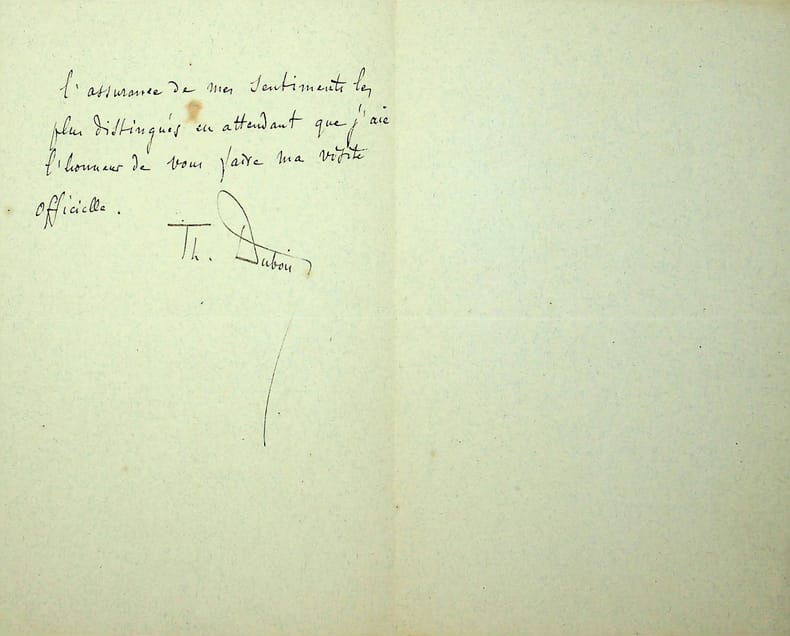 l'assurance de mes sentiments les
plus distingués en attendant que j'aie
l'honneur de vous faire ma visite
officielle.
Th. Dubois